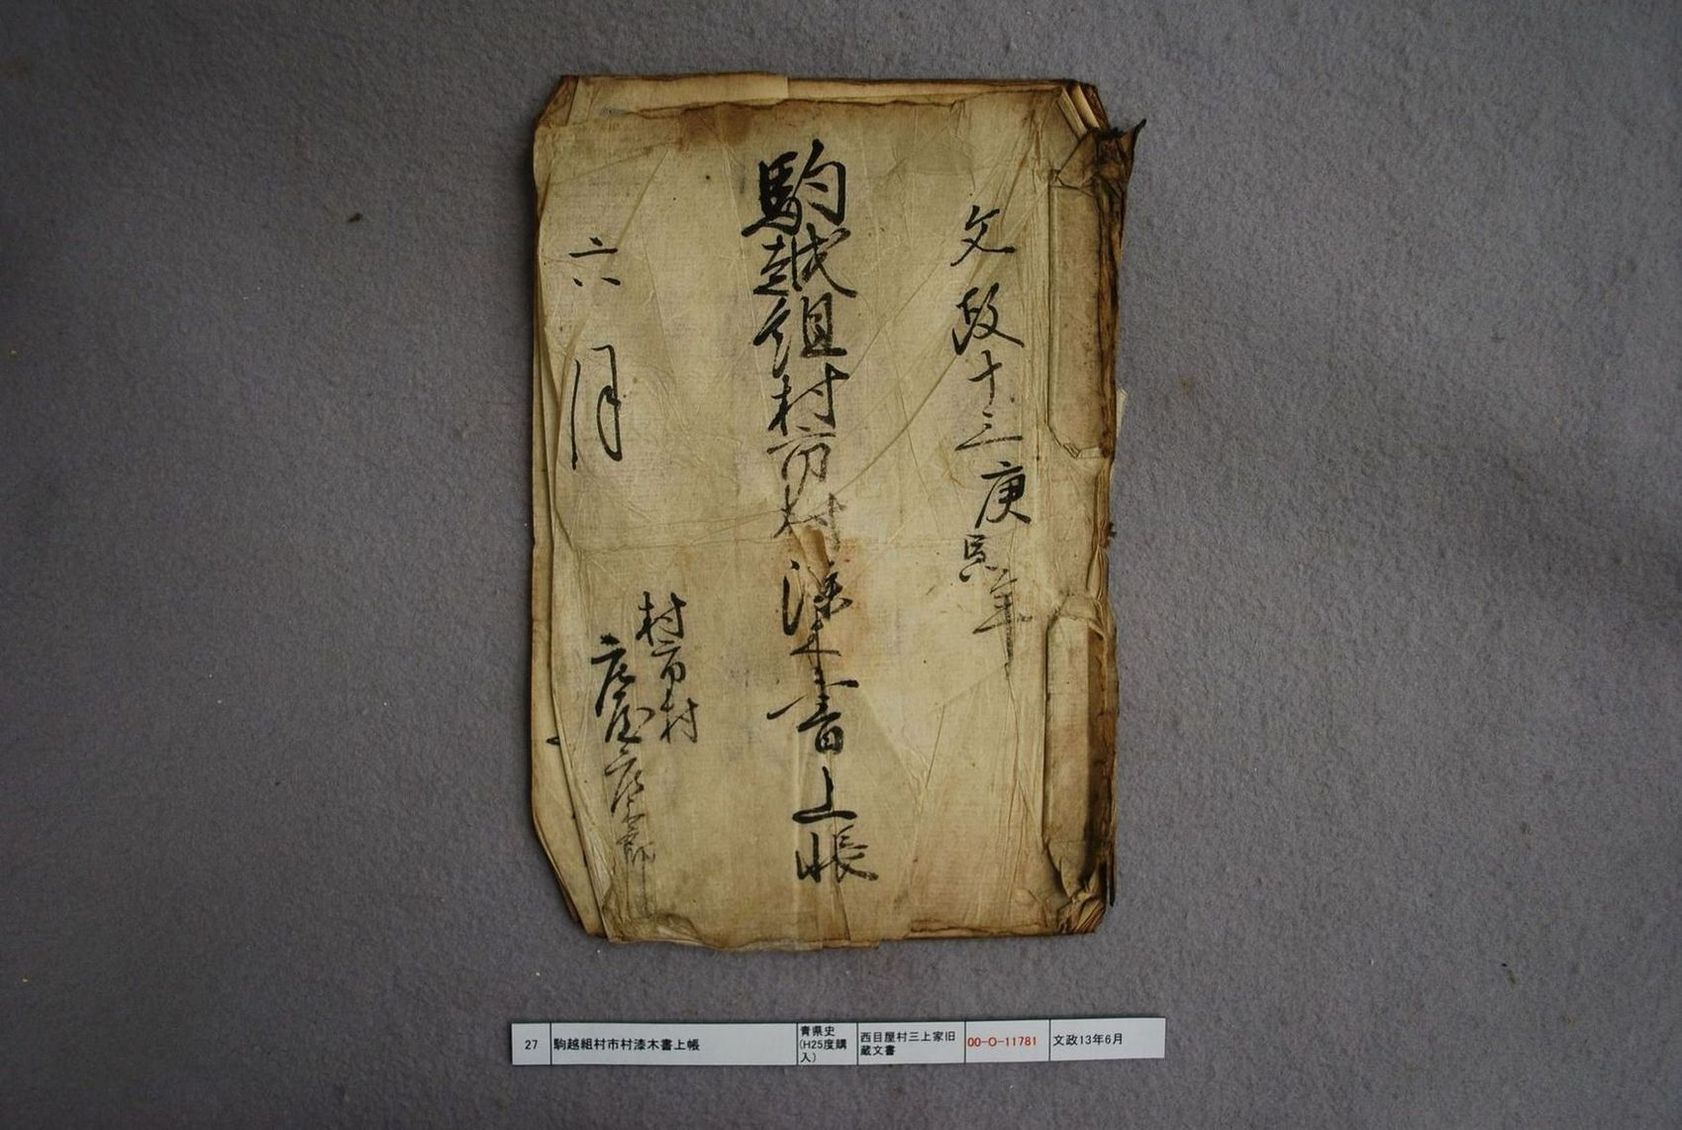 文政十三庚寅年
駒越組村市村漆木書上帳
六月
村市村
庄屋
27
駒越組村市村漆木書上帳
青県史
(H25度購
入)
西目屋村三上家旧
蔵文書
00-O-11781
文政13年6月